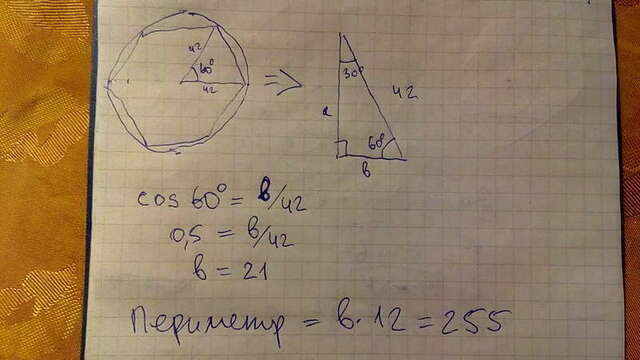 42
60°
42
=>
30°
42
a
60°
в
cos 60° = в/42
0,5 = в/42
в = 21
Периметр = в·12 = 255